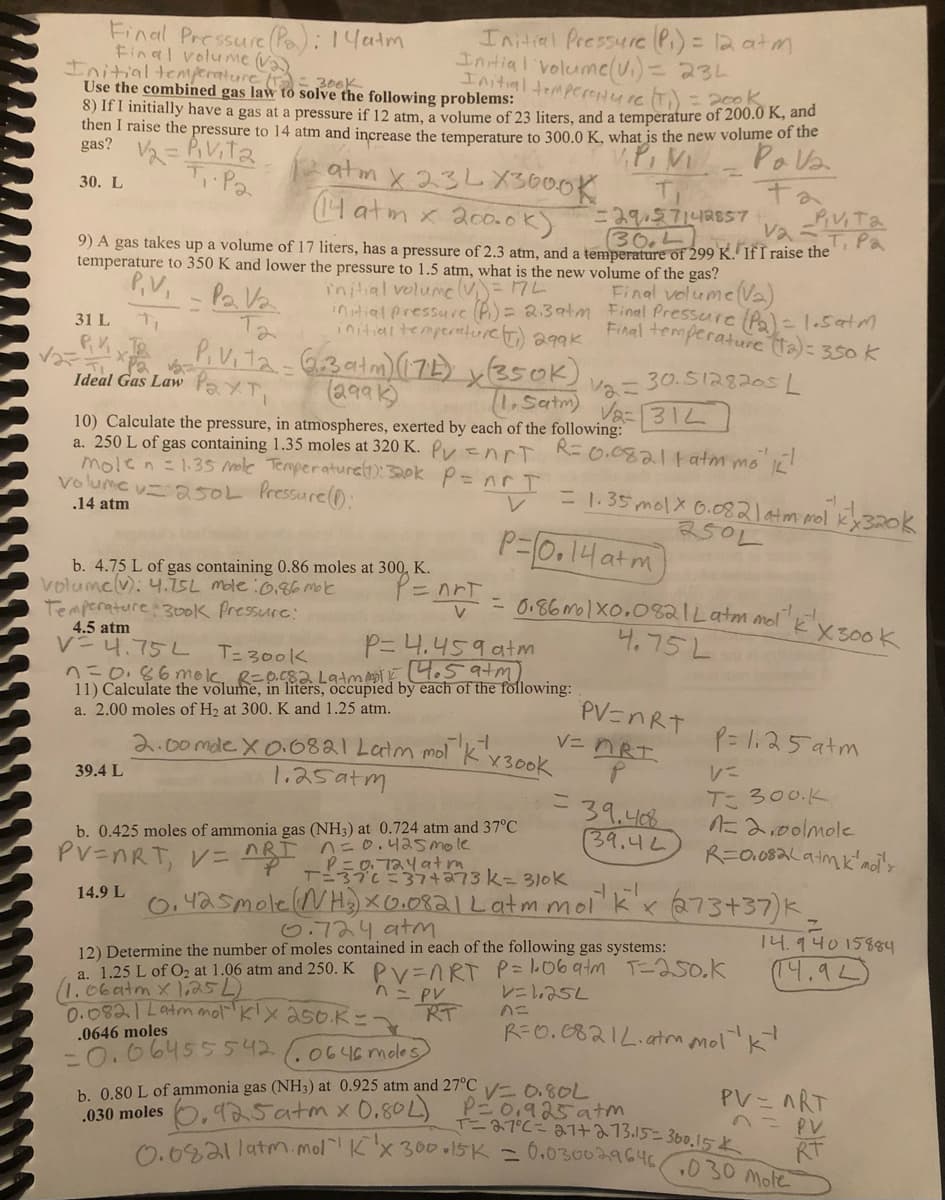 Final Pressure (P2): 14atm
Initial Pressure (P1) = 12 atm
Final volume (V2)
Initial volume (V1) = 23L
Initial temperature (T2) = 300K
Initial temperature (T1) = 200K
Use the combined gas law to solve the following problems:
8) If I initially have a gas at a pressure if 12 atm, a volume of 23 liters, and a temperature of 200.0 K, and
then I raise the pressure to 14 atm and increase the temperature to 300.0 K, what is the new volume of the
gas?
V2 = P1V1T2 / T1·P2
P1V1 / T1 = P2V2 / T2
30. L
12 atm x 23L x 300.0K
(14 atm x 200.0K)
= 29.57142857
30.L
V2 = P1V1T2 / T1P2
9) A gas takes up a volume of 17 liters, has a pressure of 2.3 atm, and a temperature of 299 K. If I raise the
temperature to 350 K and lower the pressure to 1.5 atm, what is the new volume of the gas?
P1V1 / T1 = P2V2 / T2
initial volume (V1) = 17L
Final volume (V2)
initial pressure (P1) = 2.3atm
Final Pressure (P2) = 1.5atm
initial temperature (T1) 299K
Final temperature (T2) = 350K
31 L
V2 = P1V1 / T1 x T2 / P2
V2 = P1V1T2 / P2xT1 = (2.3atm)(17L) x (350K) / (299K) (1.5atm)
V2 = 30.5128205 L
V2 = 31L
Ideal Gas Law
10) Calculate the pressure, in atmospheres, exerted by each of the following:
a. 250 L of gas containing 1.35 moles at 320 K.
PV = nrT R = 0.0821 L atm mo⁻¹ K⁻¹
Mole n = 1.35 mole Temperature(t): 320K
P = nrT / V
Volume v = 250L Pressure(P):
= 1.35 mol x 0.0821 atm mol⁻¹ K⁻¹ x 320K / 250L
.14 atm
P = 0.14 atm
b. 4.75 L of gas containing 0.86 moles at 300. K.
Volume(v): 4.75L mole: 0.86 mole
P = nrT / V = 0.86 mol x 0.0821 L atm mol⁻¹ K⁻¹ x 300K / 4.75 L
Temperature: 300K Pressure:
4.5 atm
V = 4.75L T = 300K
P = 4.459 atm
n = 0.86 mole R = 0.082 Latm mol⁻¹ K⁻¹
4.5 atm
11) Calculate the volume, in liters, occupied by each of the following:
a. 2.00 moles of H₂ at 300. K and 1.25 atm.
PV = nRT
2.00 mole x 0.0821 Latm mol⁻¹ K⁻¹ x 300K
1.25 atm
V = nRT / P
P = 1.25 atm
V =
39.4 L
T = 300.K
= 39.408
n = 2.00/mole
39.4L
R = 0.082Latm K⁻¹ mol⁻¹
b. 0.425 moles of ammonia gas (NH₃) at 0.724 atm and 37°C
PV = nRT, V = nRT / P
n = 0.425 mole
P = 0.724 atm
T = 37°C = 37+273 K = 310K
14.9 L
0.425 mole (NH3) x 0.0821 L atm mol⁻¹ K⁻¹ x (273+37)K =
0.724 atm
14.94015884
14.9L
12) Determine the number of moles contained in each of the following gas systems:
a. 1.25 L of O₂ at 1.06 atm and 250. K
PV = nRT P = 1.06 atm T = 250.K
(1.06atm x 1.25L)
n = PV / RT
V = 1.25L
0.0821 Latm mol⁻¹ K⁻¹ x 250.K =
n =
R = 0.0821L.atm mol⁻¹ K⁻¹
.0646 moles
= 0.06455542 .0646 moles
b. 0.80 L of ammonia gas (NH₃) at 0.925 atm and 27°C
V = 0.80L
PV = nRT
.030 moles
(0.925 atm x 0.80L)
P = 0.925 atm
n = PV / RT
T = 27°C = 27+273.15 = 300.15 K
0.0821 latm.mol⁻¹ K⁻¹ x 300.15K = 0.030029646
.030 mole